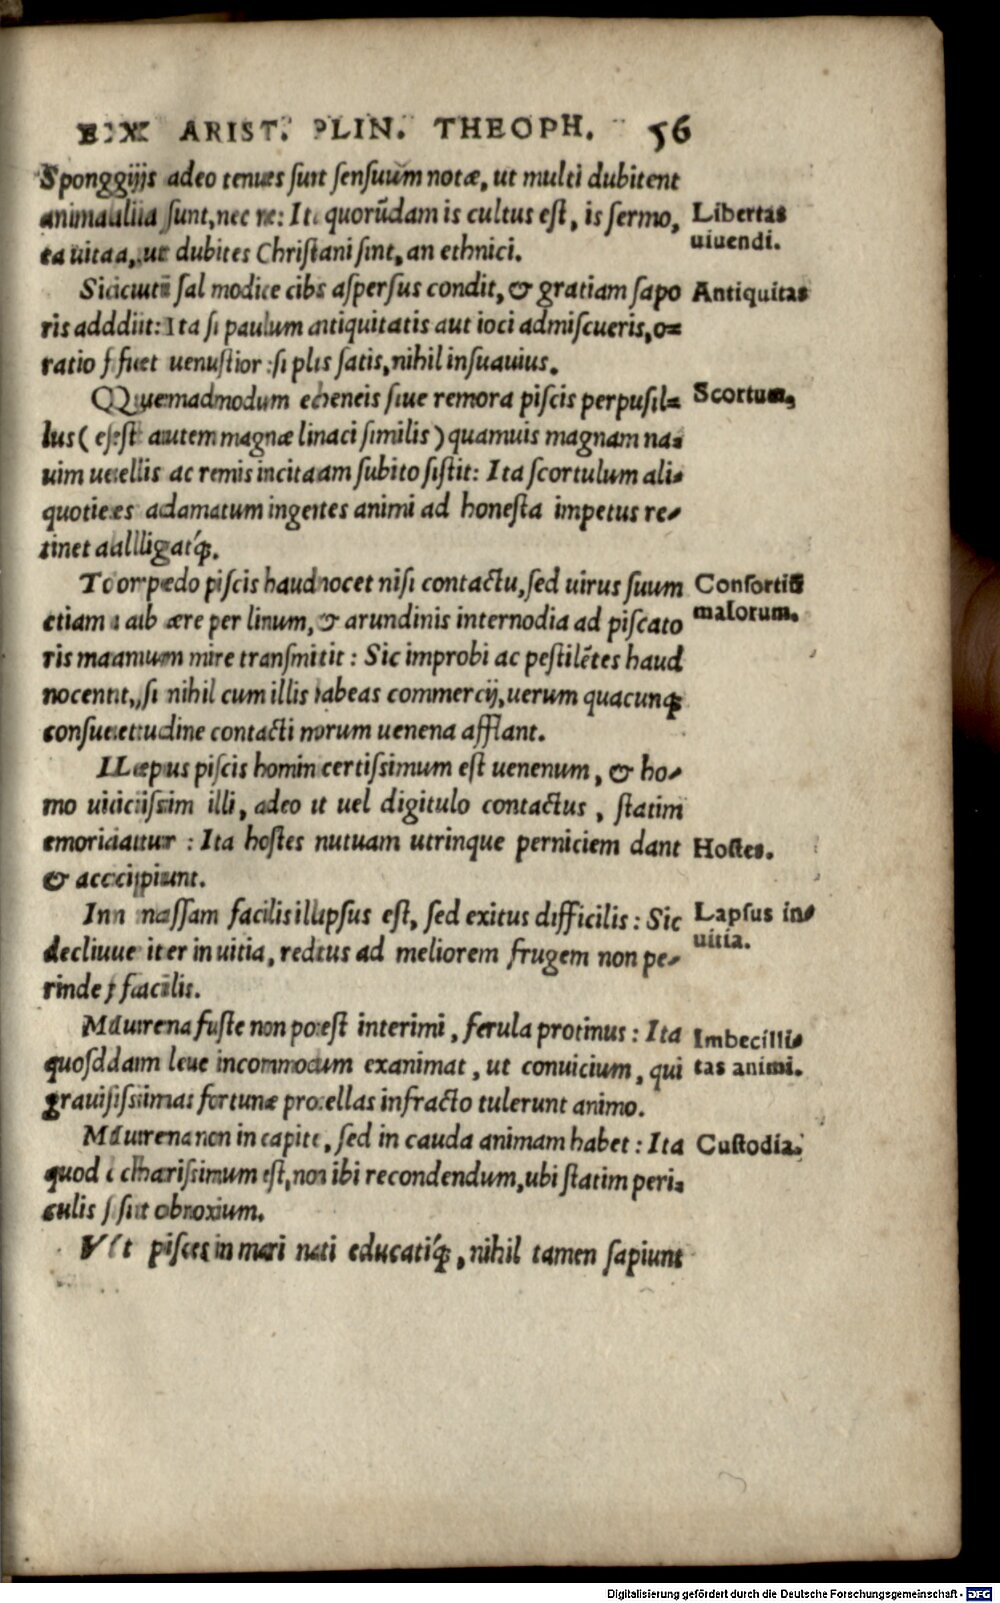 EX ARIST. PLIN. THEOPH. 56
Spongijs adeo tenues sunt sensuum notæ, ut multi dubitent
animalia sunt, nec ne: Ita quorũdam is cultus est, is sermo,
ea uita, ut dubites Christani sint, an ethnici.
Libertas
uiuendi.
Sicuti sal modice cibis aspersus condit, & gratiam sapo
ris addit: Ita si paulum antiquitatis aut ioci admiscueris, o=
ratio fuet uenustior: si plus satis, nihil insuauius.
Antiquitas
Quemadmodum echeneis siue remora piscis perpusil=
lus (est autem magnæ limaci similis) quamuis magnam na=
uim uelis ac remis incitatam subito sistit: Ita scortulum ali=
quoties adamatum ingentes animi ad honesta impetus re=
tinet alligatq́;.
Scortum,
Torpedo piscis haud nocet nisi contactu, sed uirus suum
etiam ab ære per linum, & arundinis internodia ad piscato
ris manum mire transmitit: Sic improbi ac pestilẽtes haud
nocent, si nihil cum illis habeas commercij, uerum quacunq;
consuetudine contacti morum uenena afflant.
Consortiũ
malorum.
Lepus piscis homini certissimum est uenenum, & ho=
mo uicissim illi, adeo ut uel digitulo contactus, statim
emoriatur: Ita hostes mutuam utrinque perniciem dant
& accipiunt.
Hostes.
In nassam facilis illapsus est, sed exitus difficilis: Sic
decliue iter in uitia, reditus ad meliorem frugem non pe=
rinde facilis.
Lapsus in=
uitia.
Murena fuste non potest interimi, ferula protinus: Ita
quosdam leue incommodum exanimat, ut conuicium, qui
grauissimas fortunæ procellas infracto tulerunt animo.
Imbecilli=
tas animi.
Murena non in capite, sed in cauda animam habet: Ita
quod charissimum est, non ibi recondendum, ubi statim peri=
culis sit obnoxium.
Custodia.
Vt pisces in mari nati educatiq́;, nihil tamen sapiunt
Digitalisierung gefördert durch die Deutsche Forschungsgemeinschaft - DFG